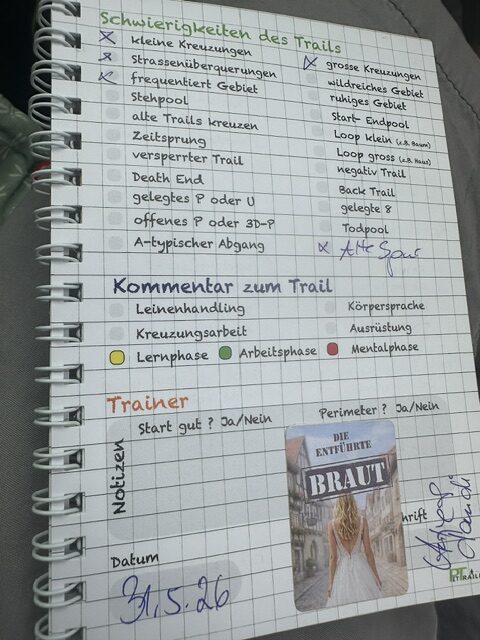 Schwierigkeiten des Trails
kleine Kreuzungen
grosse Kreuzungen
Strassenüberquerungen
wildreiches Gebiet
frequentiert Gebiet
ruhiges Gebiet
Stehpool
Start- Endpool
alte Trails kreuzen
Loop klein (z.B. Baum)
Zeitsprung
Loop gross (z.B. Haus)
versperrter Trail
negativ Trail
Death End
Back Trail
gelegtes P oder U
gelegte 8
offenes P oder 3D-P
Todpool
A-typischer Abgang
Alte Spur
Kommentar zum Trail
Leinenhandling
Körpersprache
Kreuzungsarbeit
Ausrüstung
Lernphase
Arbeitsphase
Mentalphase
Trainer
Start gut ? Ja/Nein
Perimeter ? Ja/Nein
Notizen
DIE
ENTFÜHRTE
BRAUT
hrift
Datum
31.5.26